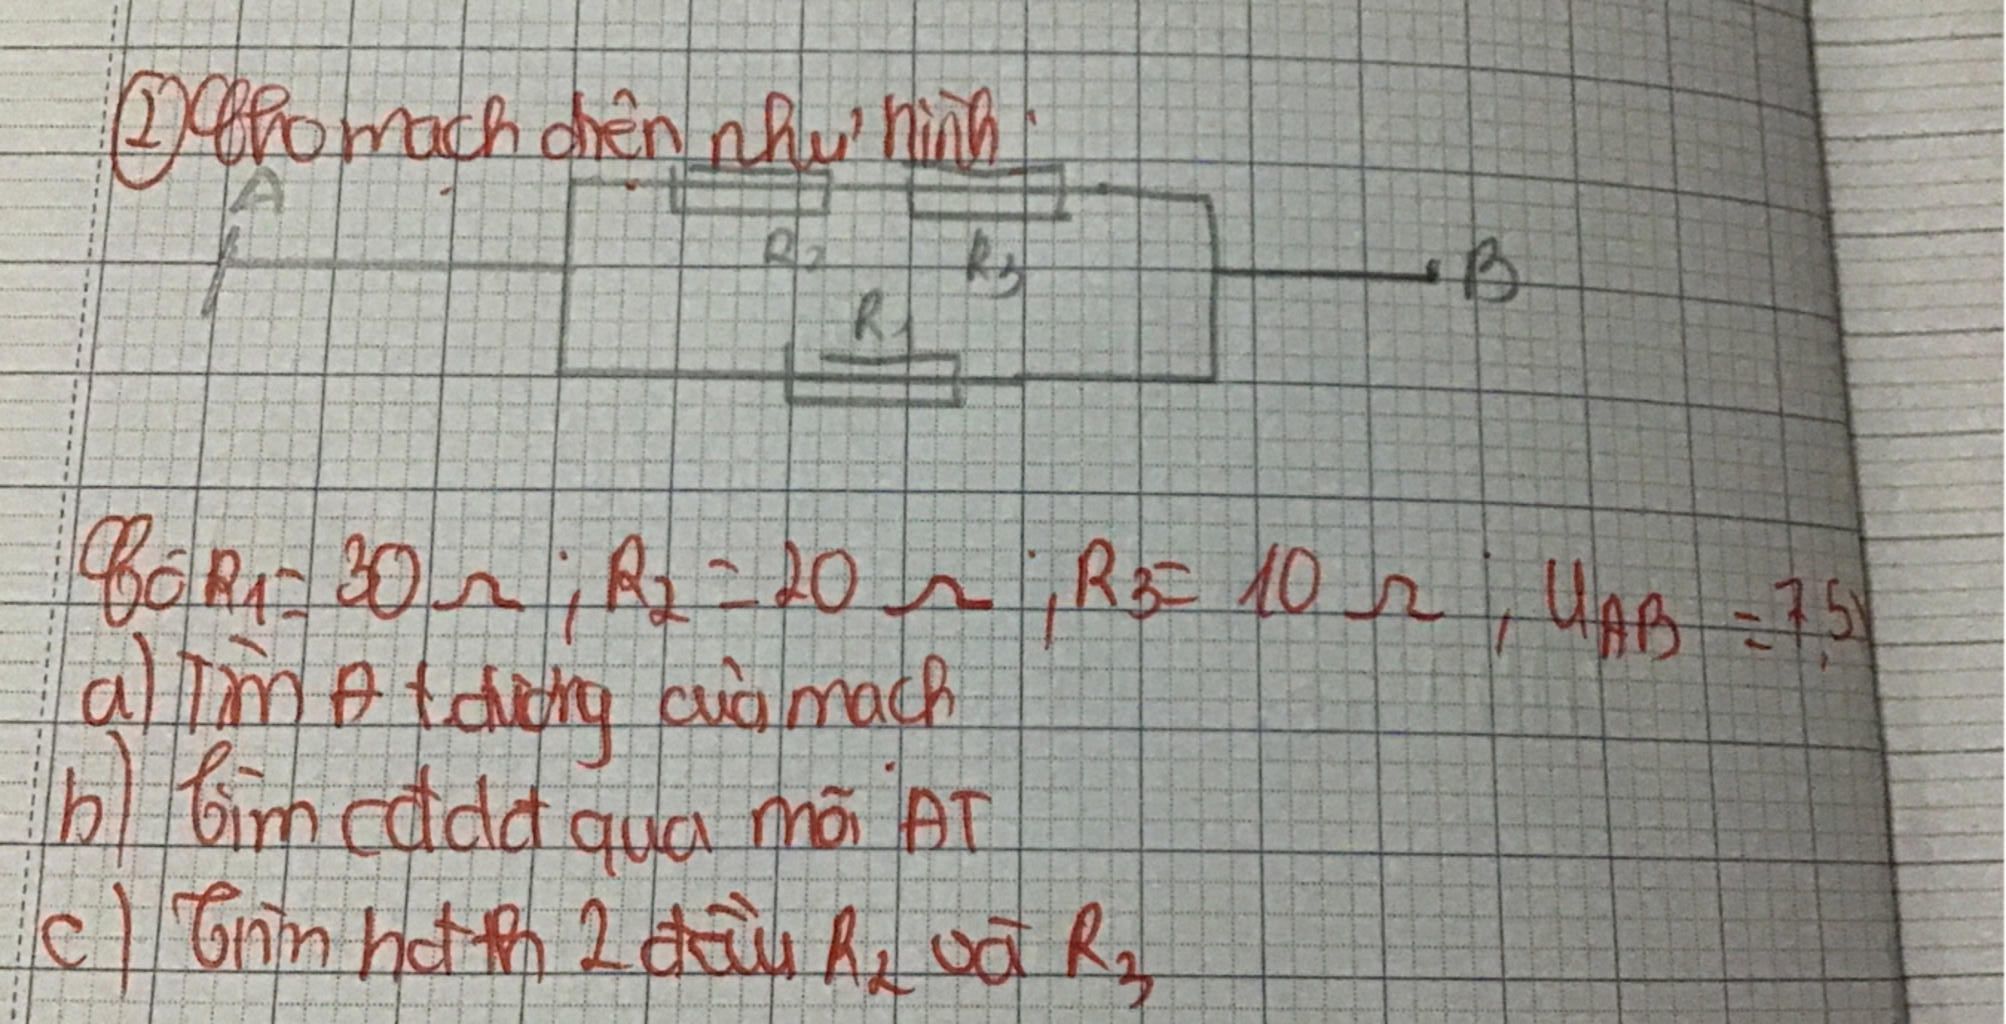 ② Cho mạch điện như hình:
A
R2 R3 B
R1
Có R1 = 30 Ω ; R2 = 20 Ω ; R3 = 10 Ω , UAB = 7,5V
a) Tìm R tđương của mạch
b) Tìm cđdđ qua mỗi ĐT
c) Tìm hđth 2 đầu R2 và R3